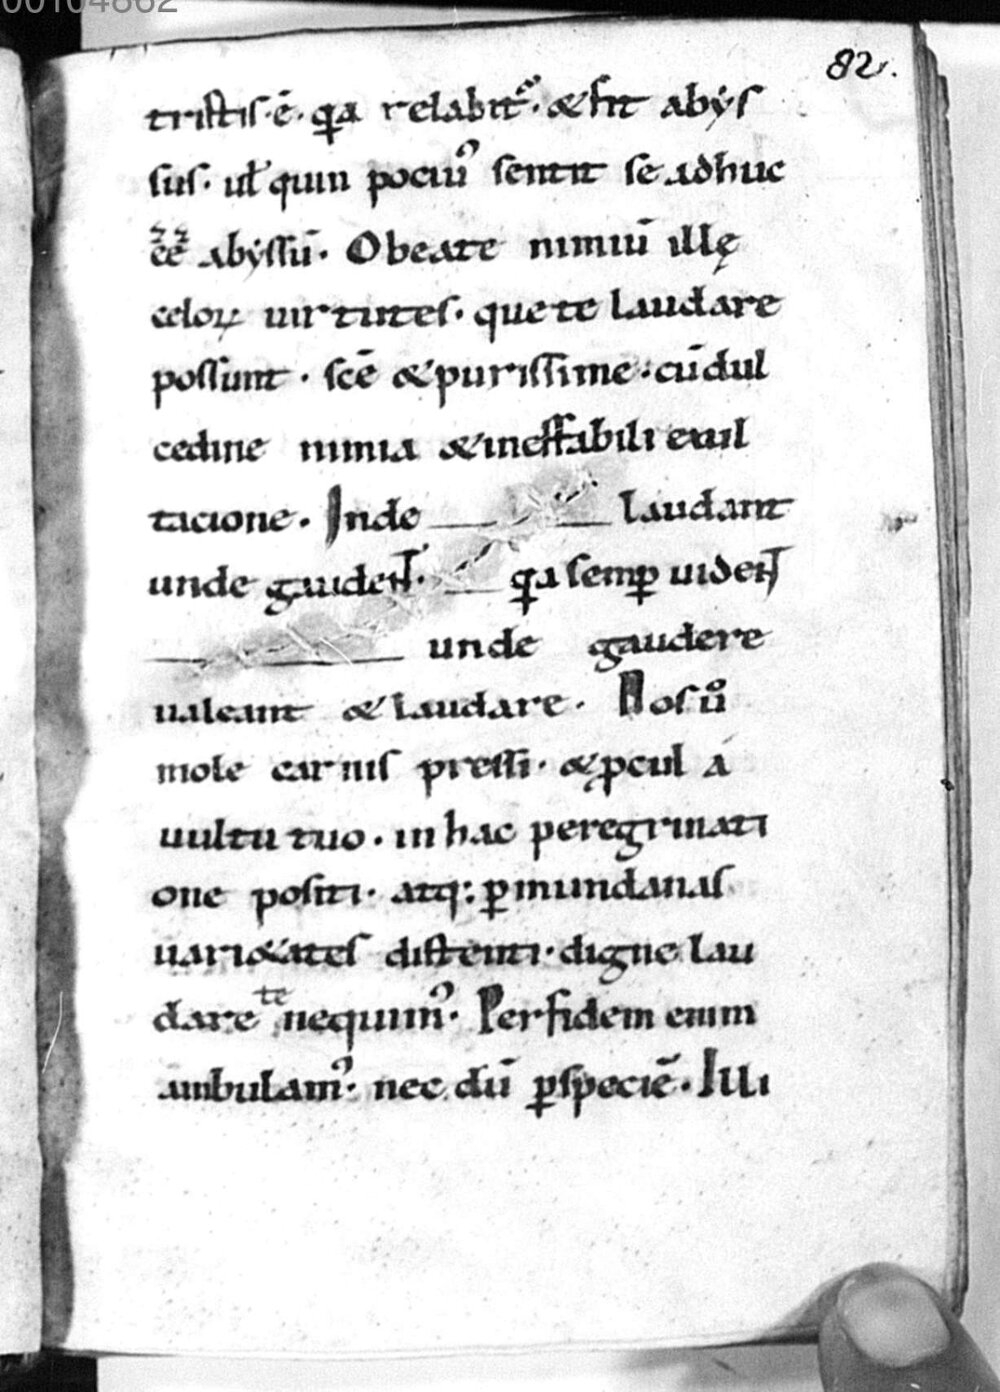 00104862
82.
tristis·ē· qa relabit᷑· & fit abys
sus· ul̓ quin pociꝰ sentit se adhuc
ee᷑ abyssū· O beate nimiū illę
celoꝝ uirtutes· que te laudare
possunt · scē & purissime· cū dul
cedine nimia & ineffabili exul
tacione· Inde laudant
unde gaudent· qa semꝑ uident
unde gaudere
ualeant & laudare· Nos uͦ
mole carnis pressi· & ꝓcul á
uultu tuo· in hac peregrinati
one positi· atq; ꝑ mundanas
uari&ates distenti· digne lau
dare te nequimꝰ· Per fidem enim
ambulamꝰ· nec dū ꝑ speciē· Illi